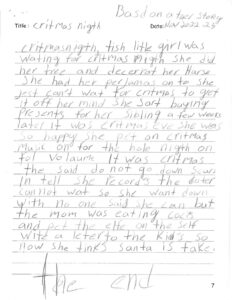 Based on a true story
Title: critmas nigth Date: Nov 2022 23
critmasnigth, tish little girl was
wating for critmas nigth she did
her tree and decorrat her Harse
She had her perjumas on to she
jest can't wat for critmas to get
it off her mind she Sort buying
Presents for her Sibling a few weeks
later it was critmas Eve she was
so happy she put on critmas
music on for the hole nigth on
fol volaume It was critmas
the said do not go down Scars
In tell she records the
conI not wat So she want down
with no one said she can but
the mom was eating cocis
and pet the elfe on the self
Wite a letter to the Kids so
now she tinks santa is fake.
the end
7